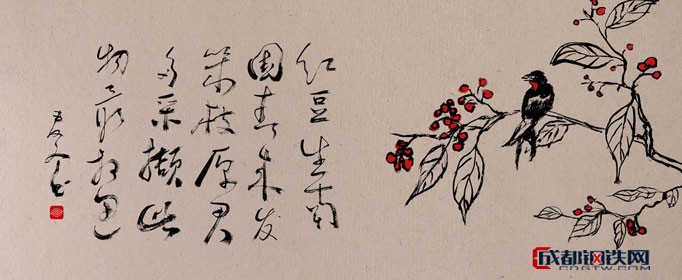 红豆生南
国春来发
幾枝愿君
多采撷此
物最相思
成都钢铁网
CDGTW.COM